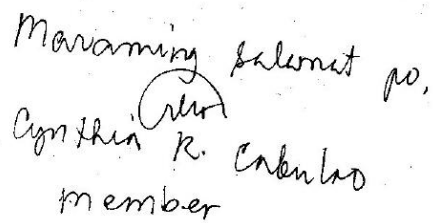 Maraming salamat po,
Cynthia R. Cabulao
member